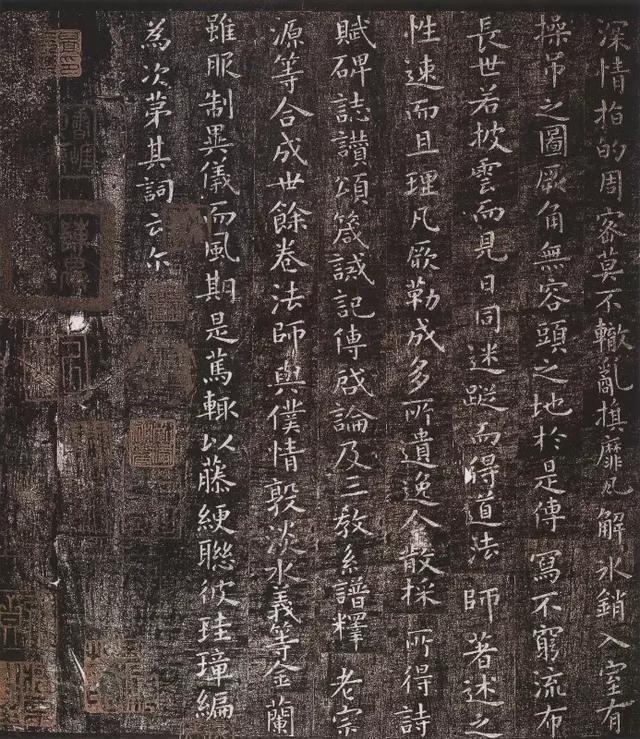 深情指的周密莫不轍亂旗靡凡解冰銷入室有
操吊之圖厥角無容頭之地於是傳寫不窮流布
長世若披雲而見日同迷蹤而得道法師著述之
性速而且理凡厥勒成多所遺逸今散採所得詩
賦碑誌讚頌箴誡記傳啟論及三教系譜釋老宗
源等合成卅餘卷法師與僕情敦淡水義等金蘭
雖服制異儀而風期是篤輒以藤綆聯彼珪璋編
為次第其詞云尔